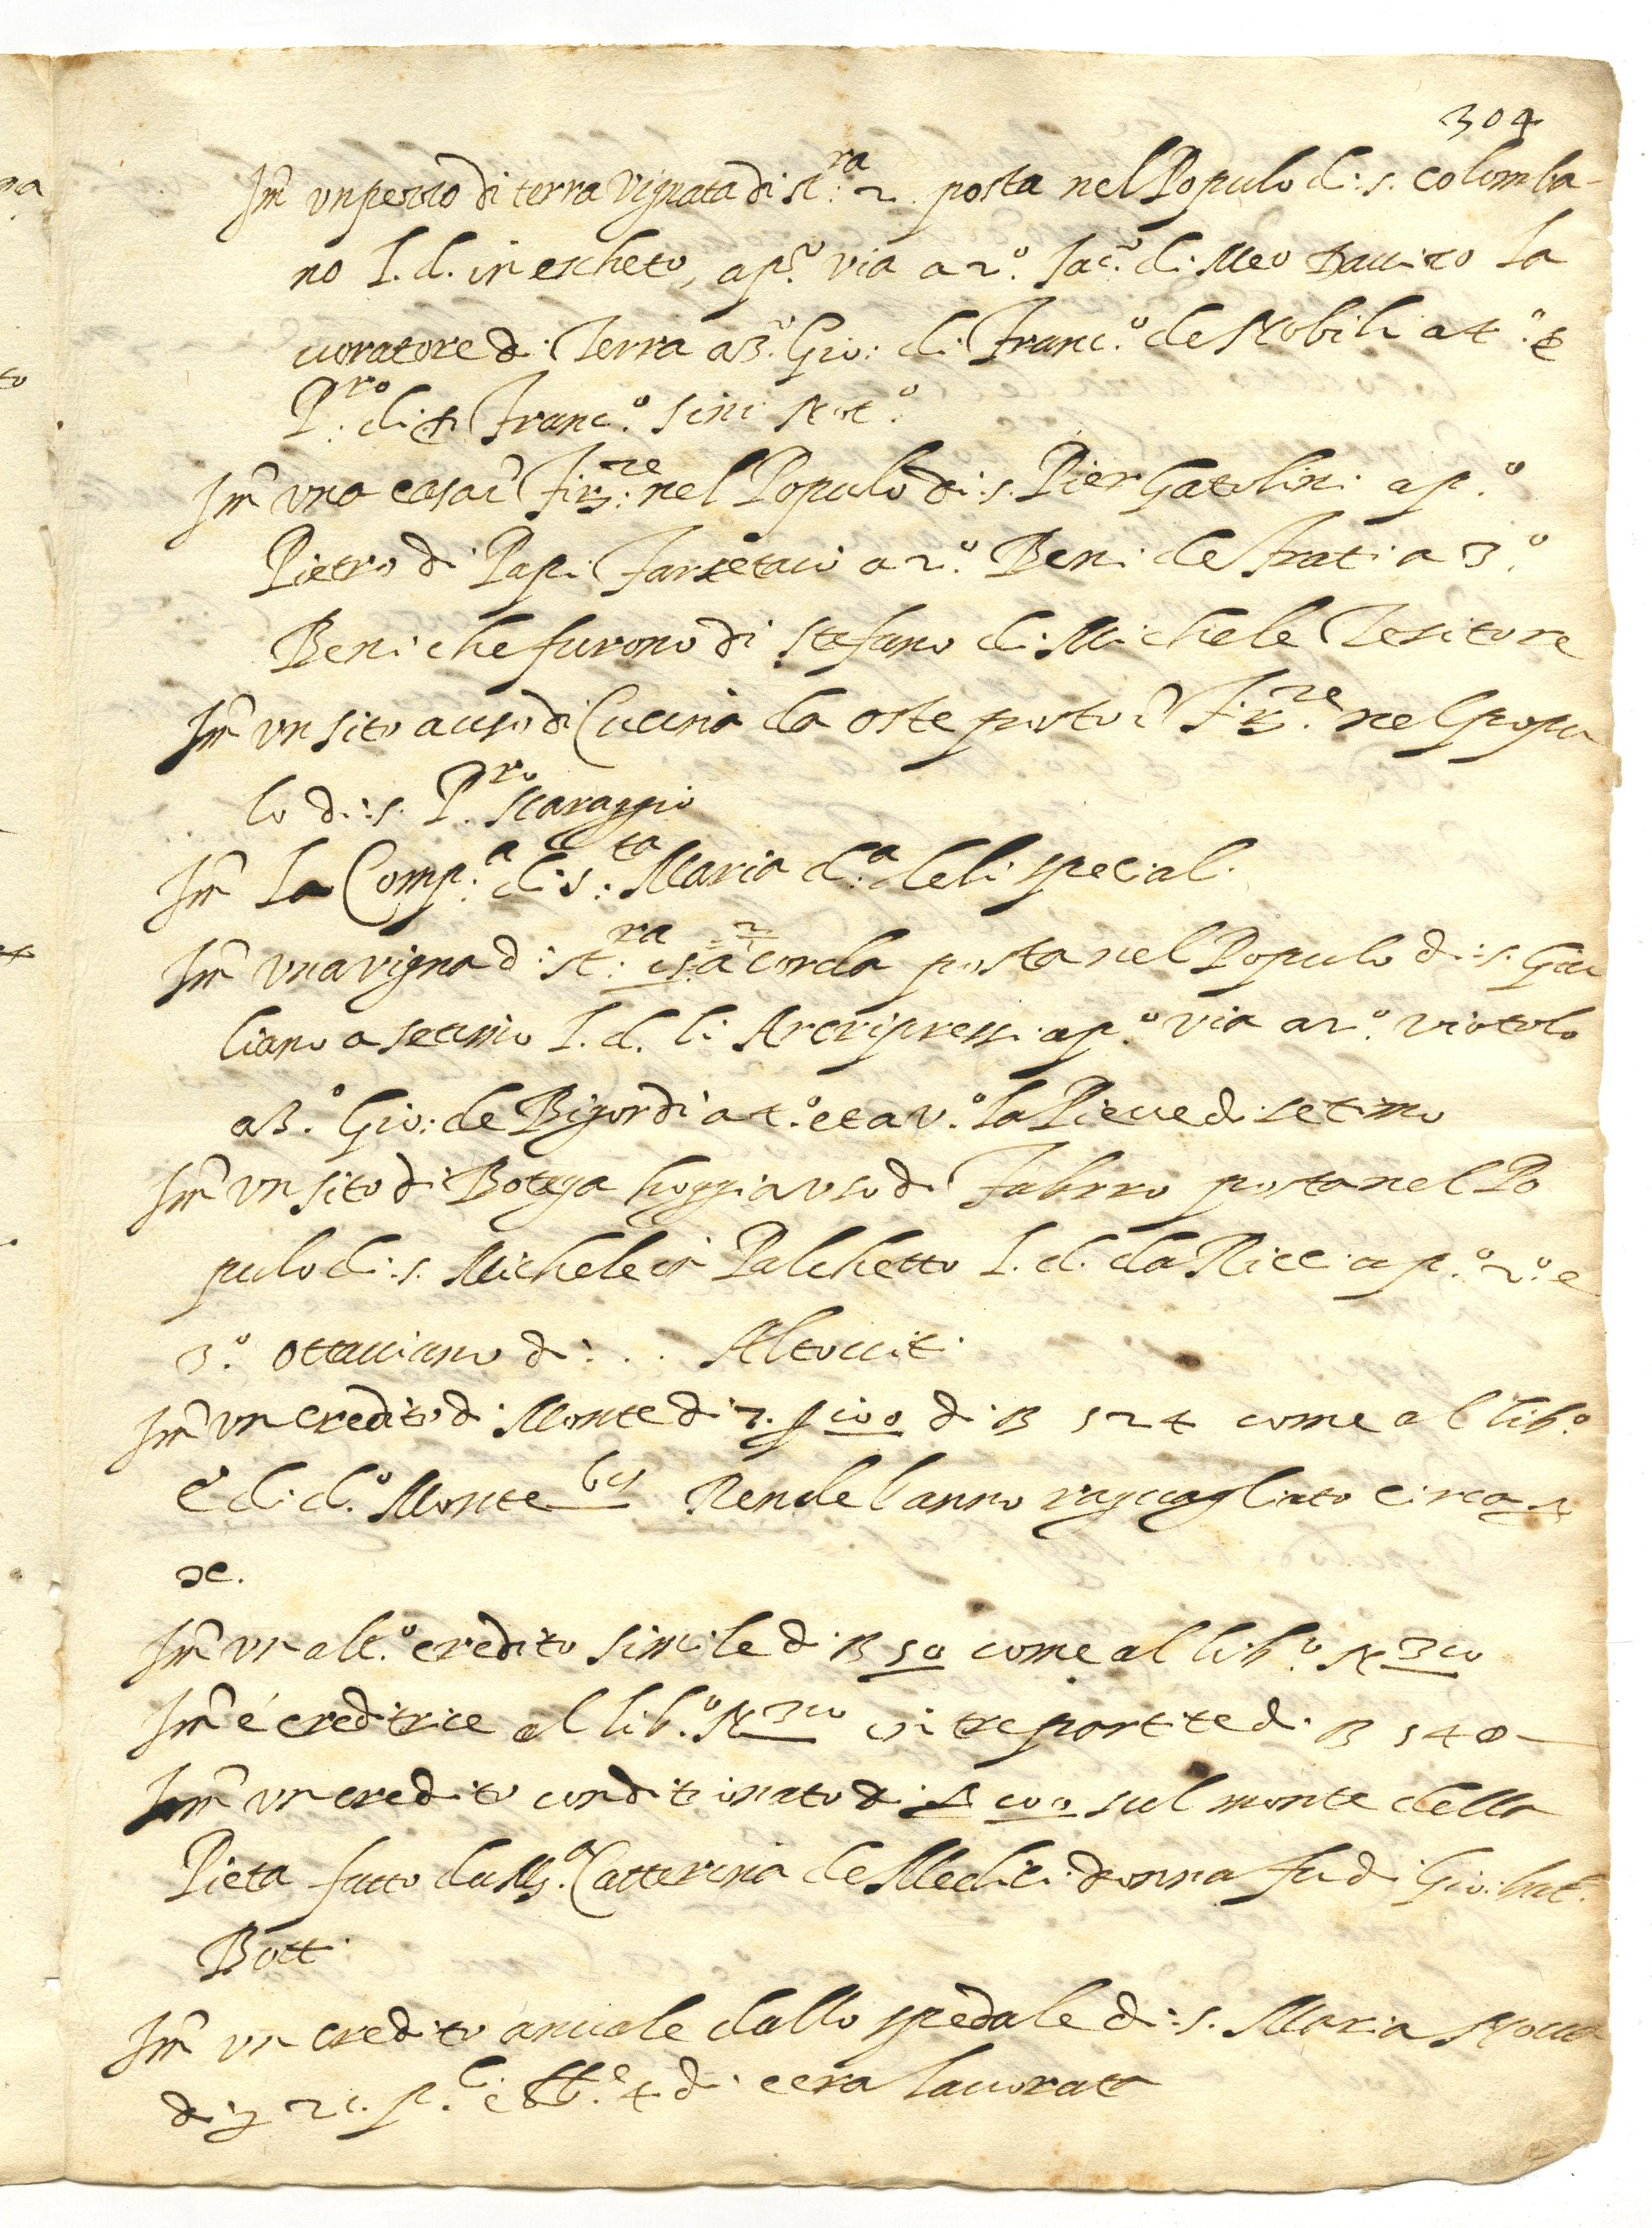 304
Im un pezzo di terra Vignata di st:ra 2 posta nel Populo di s. Colomba-
no l. d. in escheto, a p.º via a 2.º Iac.º di Meo la
uoratore di Terra a 3.º Gio: di Franc.º de Nobili a 4.º
P.ro di Franc.º Sini Not.º
Im una casa ĩ Firze: nel Populo di s. Pier Gatolini a p.º
Pietro di Papi Farsetaio a 2.º Beni de frati a 3.º
Beni che furono di Stefano di Michele Tesitore
Im un sito a uso di Cucina da oste posto ĩ Firze: nel popu
lo di s. P.ro Scaraggio
Im La Comp.a di s.ta Maria d.a deli spetial.
Im una vigna di st:ra a corda posta nel Populo di s. Giu
liano a setimo l. d. li Arcipressi a p.º via a 2.º viotolo
a 3.º Gio: de Bigordi a 4.º et a v.º la Pieue di setimo
Im un sito di Botega hoggi a uso di Fabrro posta nel Po
pulo di s. Michele in Palchetto l. d. da Ricci a p.º 2.º e
3.º Ottauiano di . . . Altouiti
Im un credito di Monte di 7. p 100 di 524 come al lib.º
di d.º Monte Rende l anno raguagliato circa
Im un alt.º credito simile di 50 come al lib.º N 310
Im é creditrice al lib.º N 310 in tre partite di 540
Im un credito conditionato di 100 sul monte della
Pieta fatto da M.a Catterina de Medici donna fu di Gio: bat.
Botti
Im un credito anuale dallo spedale di s. Maria Noua
di 21. p.li e 4 di cera lauorata